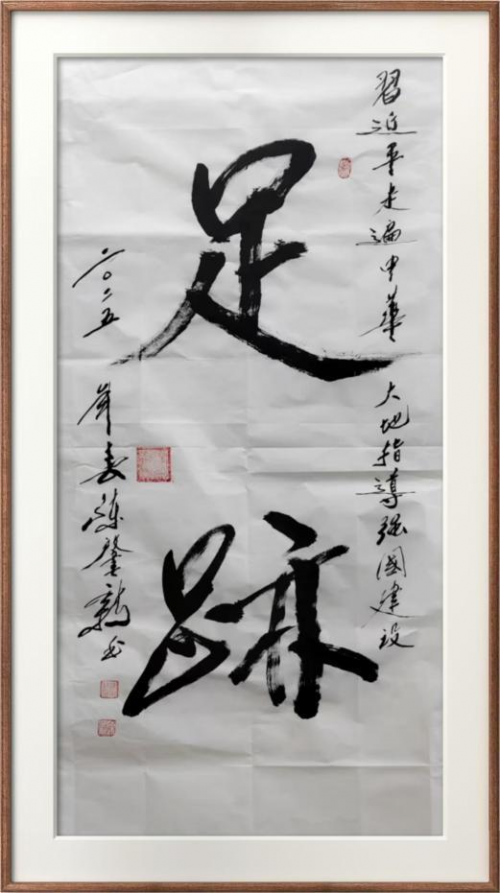 習近平走遍中華大地指導強國建設
足跡
二〇二五年春 馨 書